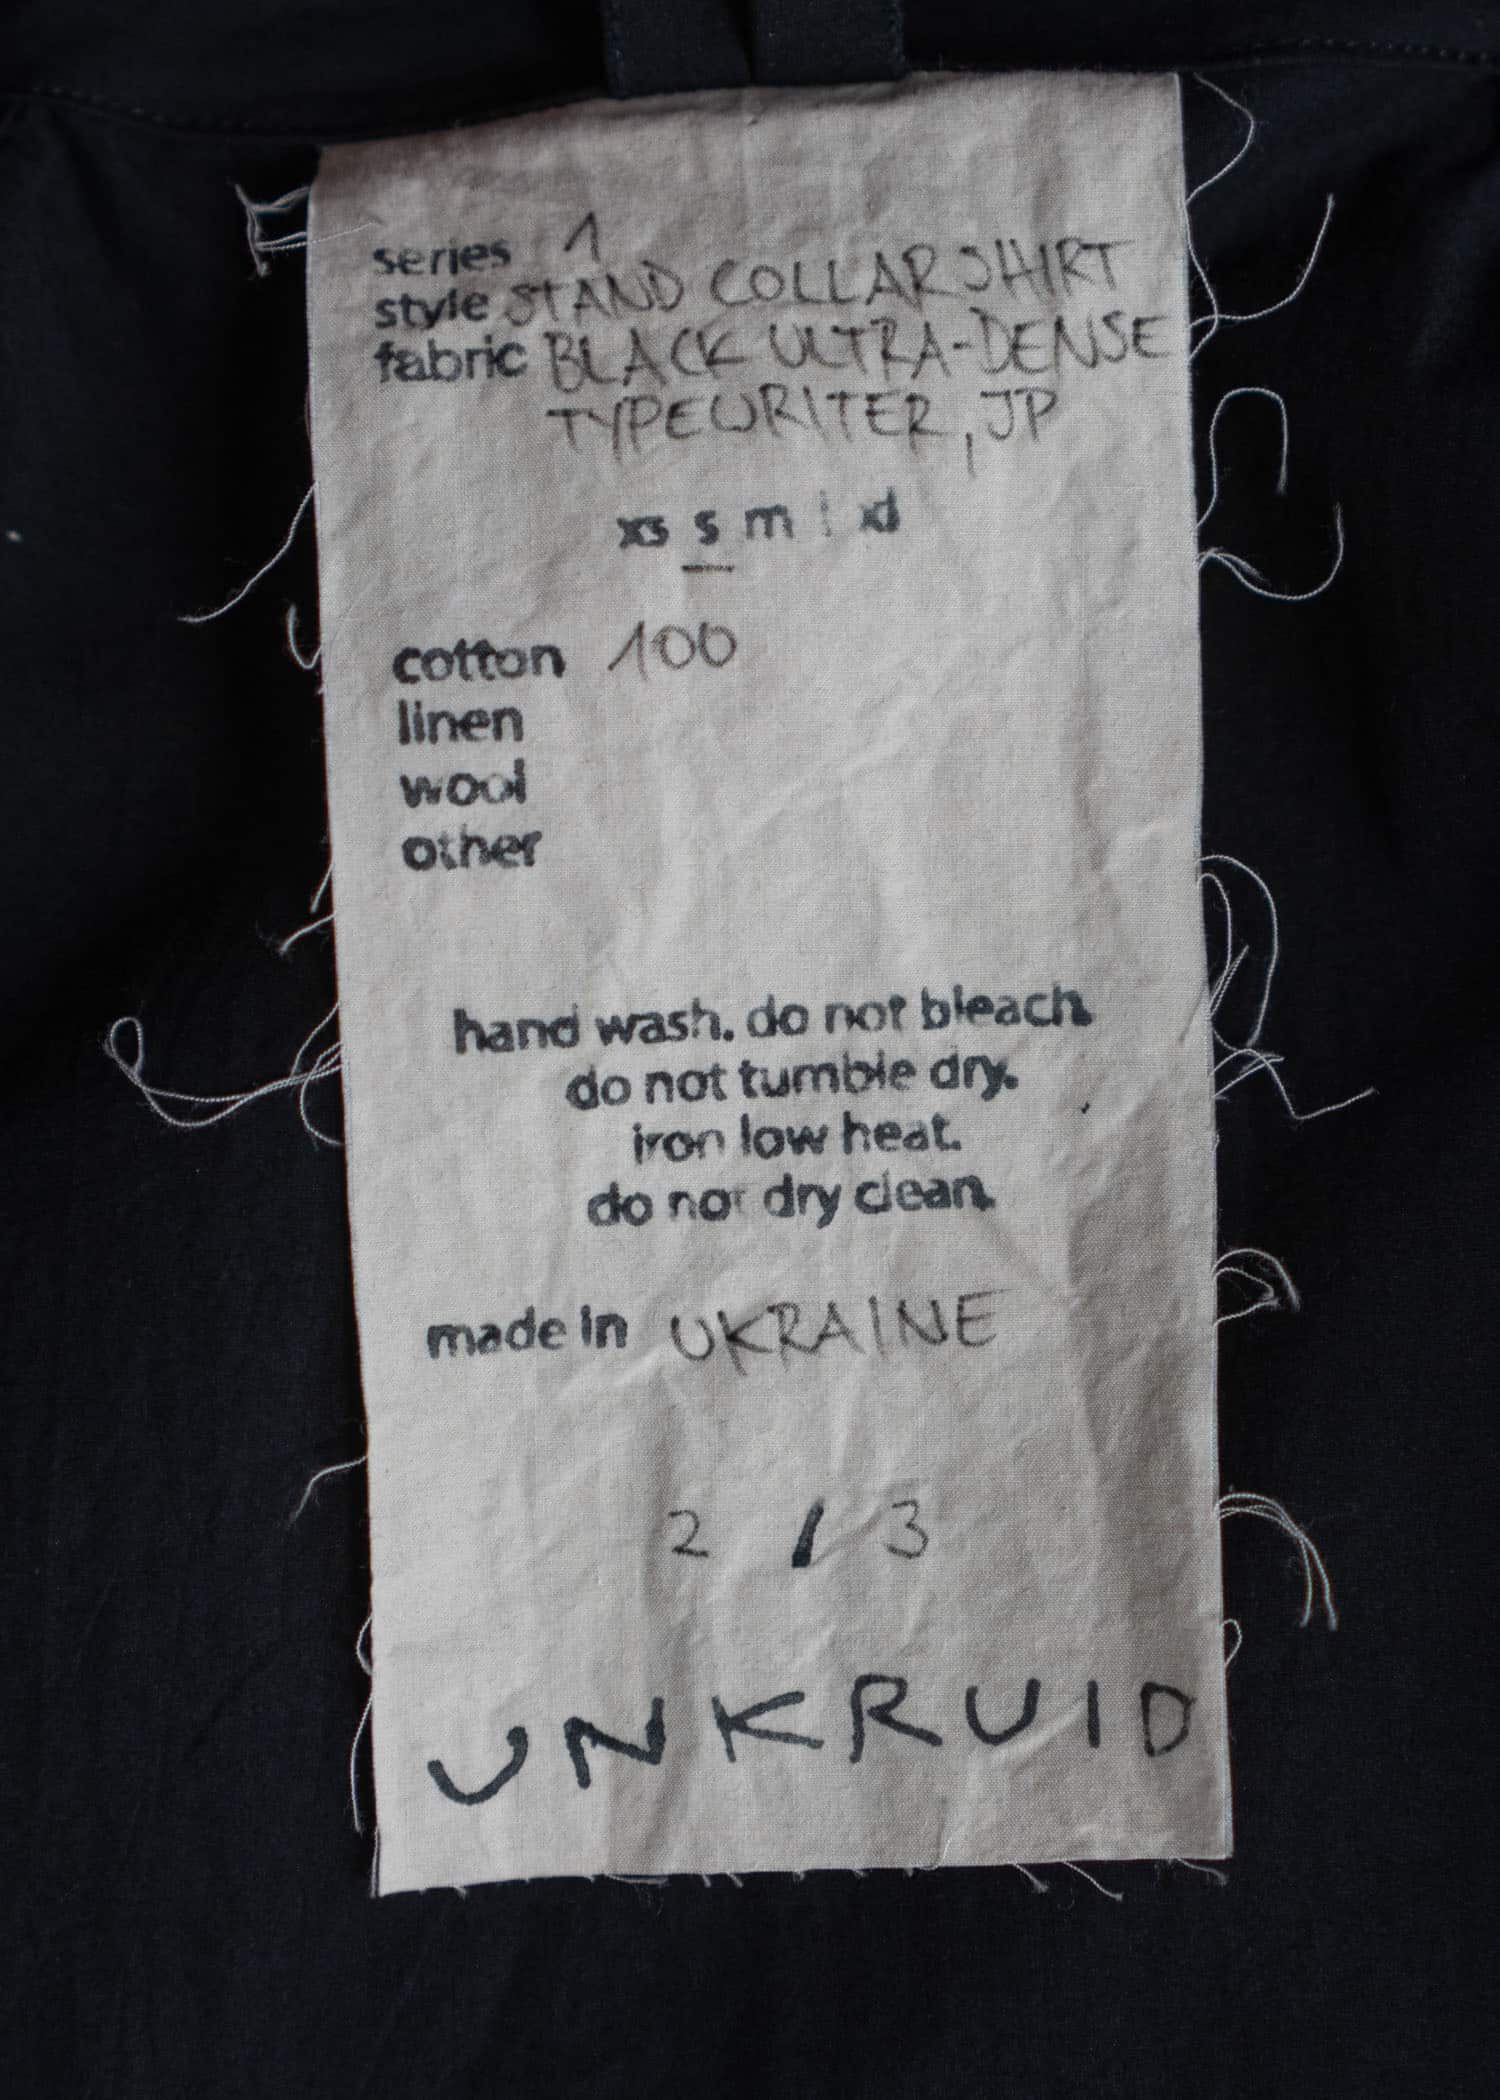 series 1
style STAND COLLAR SHIRT
fabric BLACK ULTRA-DENSE
TYPEWRITER, JP
xs s m l xl
cotton 100
linen
wool
other
hand wash. do not bleach.
do not tumble dry.
iron low heat.
do not dry clean.
made in UKRAINE
2 / 3
UNKRUID